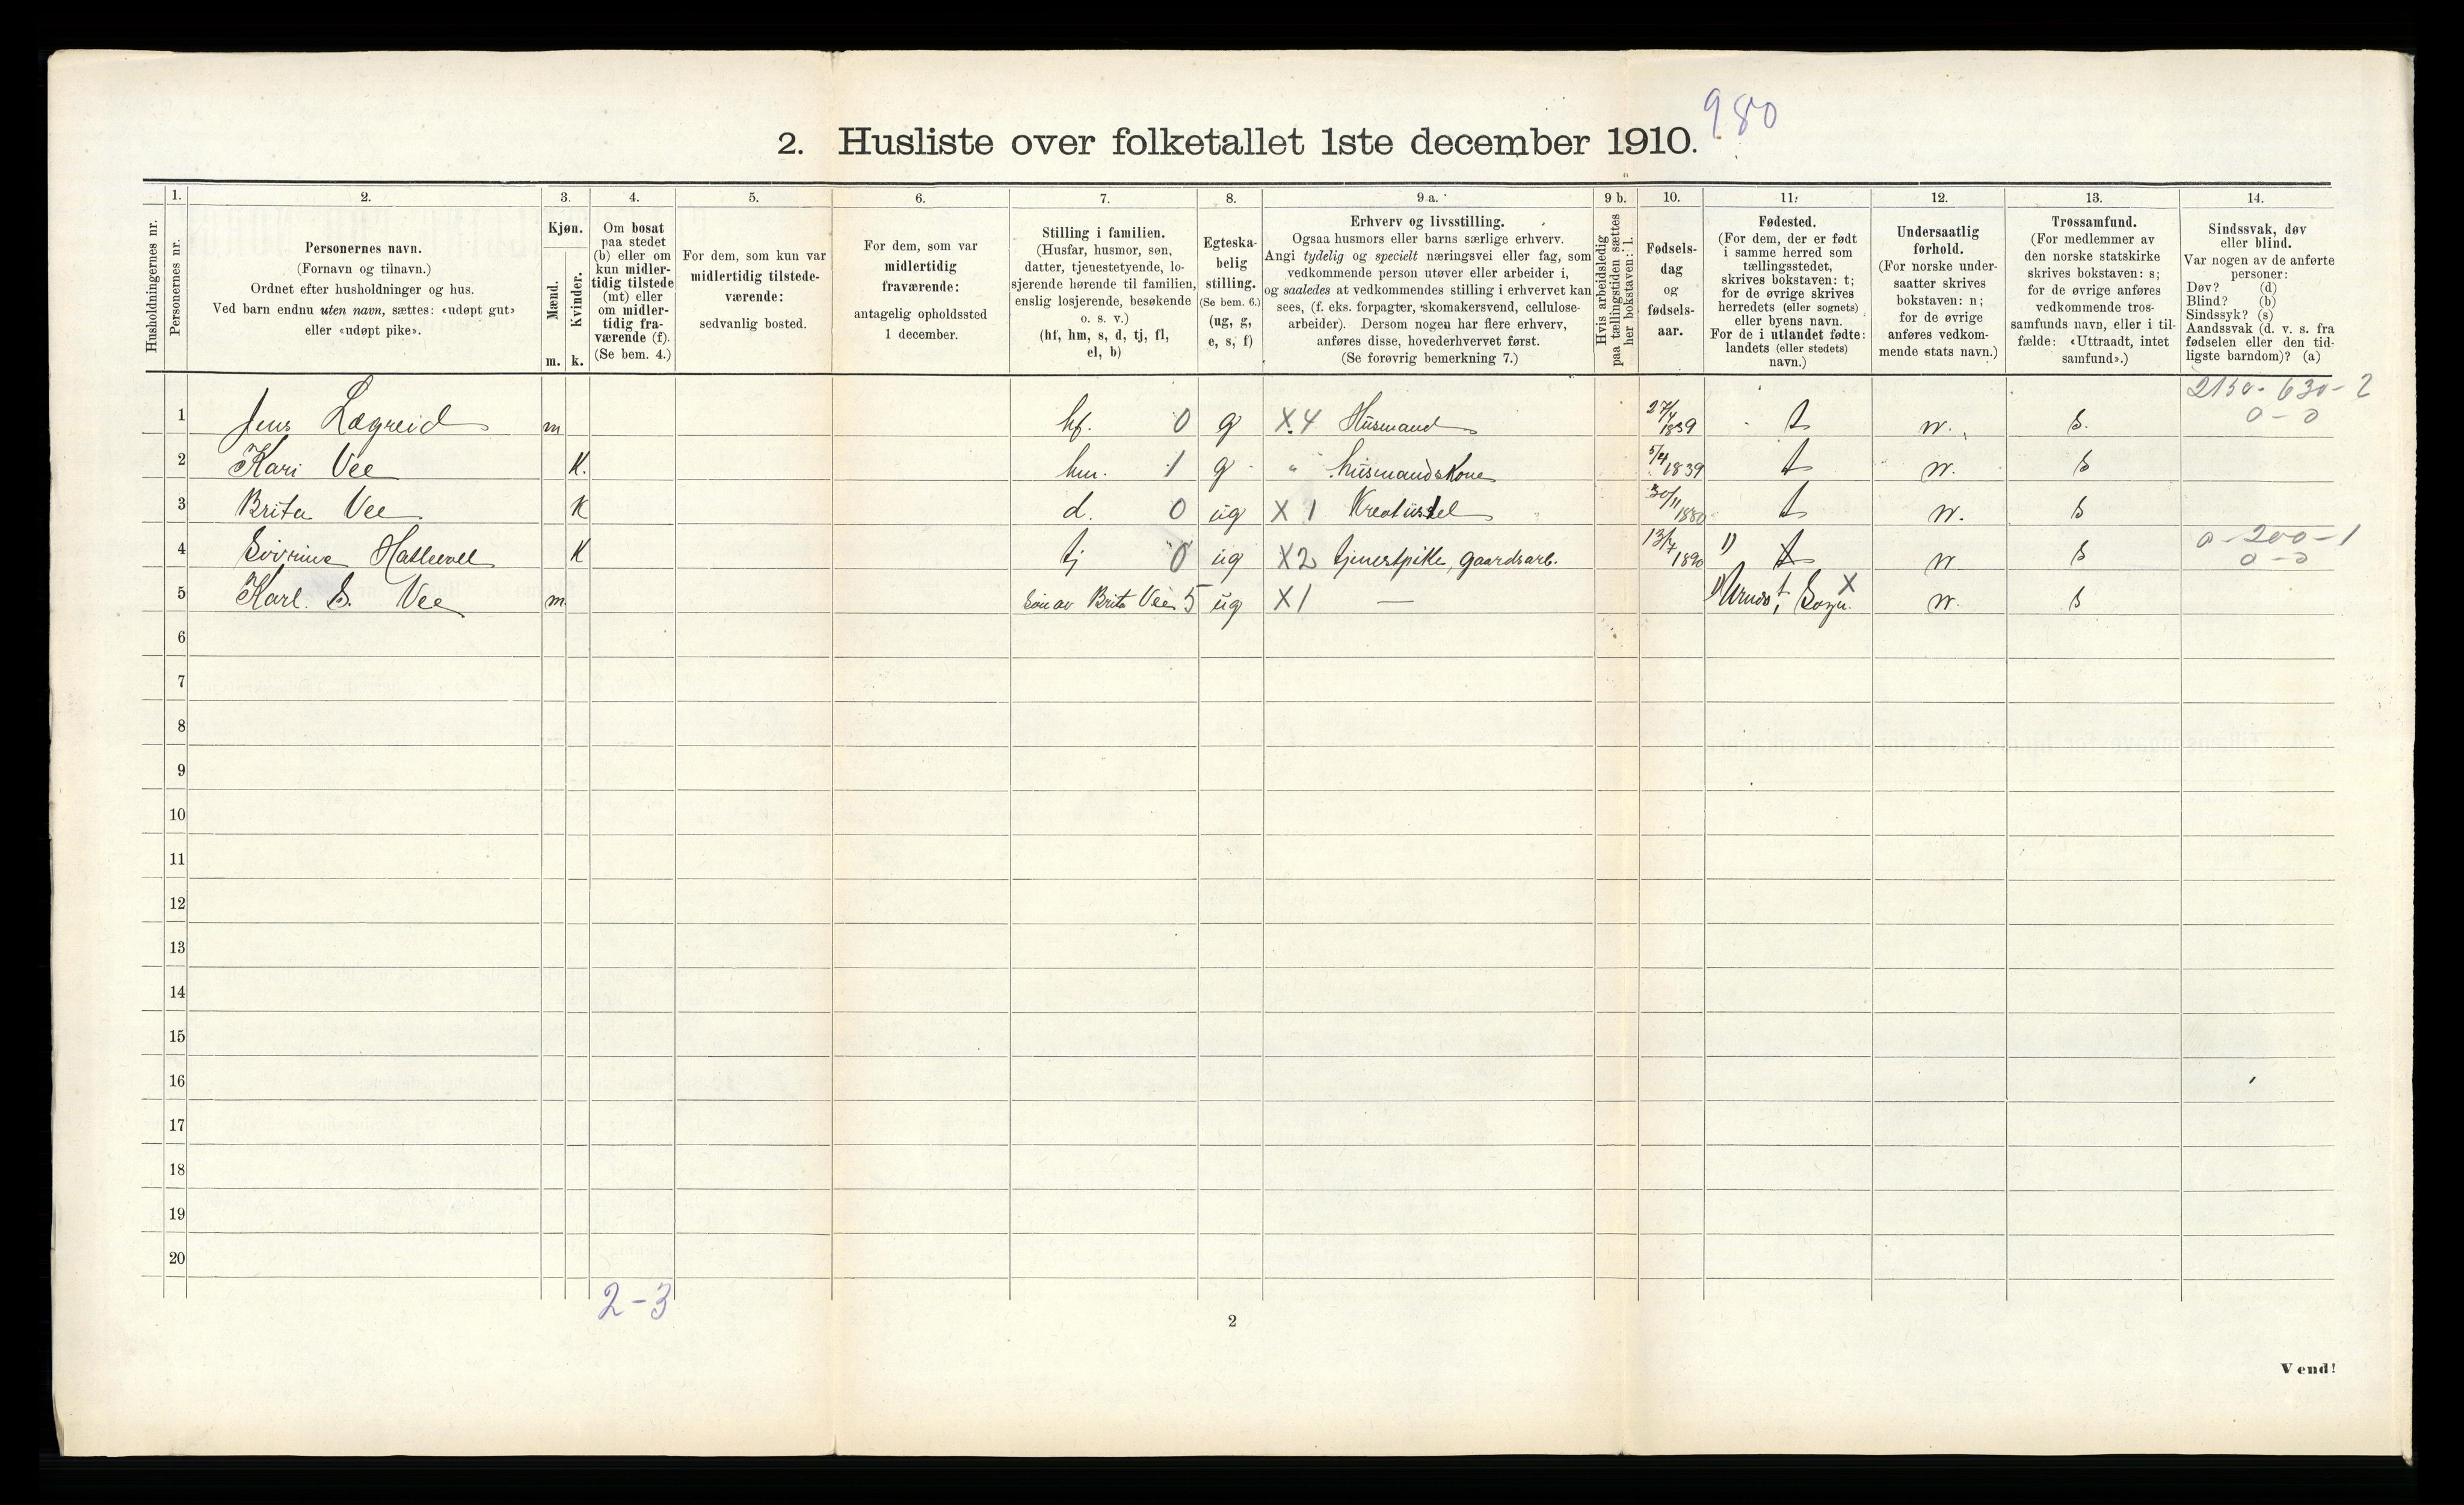 980
2. Husliste over folketallet 1ste december 1910.
Husholdningernes nr.
1.
Personernes nr.
2.
Personernes navn.
(Fornavn og tilnavn.)
Ordnet efter husholdninger og hus.
Ved barn endnu uten navn, sættes: «udøpt gut»
eller «udøpt pike».
3.
Kjøn.
Mænd.
Kvinder.
m. k.
4.
Om bosat
paa stedet
(b) eller om
kun midler-
tidig tilstede
(mt) eller
om midler-
tidig fra-
værende (f).
(Se bem. 4.)
5.
For dem, som kun var
midlertidig tilstede-
værende:
sedvanlig bosted.
6.
For dem, som var
midlertidig
fraværende:
antagelig opholdssted
1 december.
7.
Stilling i familien.
(Husfar, husmor, søn,
datter, tjenestetyende, lo-
sjerende hørende til familien,
enslig losjerende, besøkende
o. s. v.)
(hf, hm, s, d, tj, fl,
el, b)
8.
Egteska-
belig
stilling.
(Se bem. 6.)
(ug, g,
e, s, f)
9 a.
Erhverv og livsstilling.
Ogsaa husmors eller barns særlige erhverv.
Angi tydelig og specielt næringsvei eller fag, som
vedkommende person utøver eller arbeider i,
og saaledes at vedkommendes stilling i erhvervet kan
sees, (f. eks. forpagter, skomakersvend, cellulose-
arbeider). Dersom nogen har flere erhverv,
anføres disse, hovederhvervet først.
(Se forøvrig bemerkning 7.)
9 b.
Hvis arbeidsledig
paa tællingstiden sættes
her bokstaven: l.
10.
Fødsels-
dag
og
fødsels-
aar.
11.
Fødested.
(For dem, der er født
i samme herred som
tællingsstedet,
skrives bokstaven: t;
for de øvrige skrives
herredets (eller sognets)
eller byens navn.
For de i utlandet fødte:
landets (eller stedets)
navn.)
12.
Undersaatlig
forhold.
(For norske under-
saatter skrives
bokstaven: n;
for de øvrige
anføres vedkom-
mende stats navn.)
13.
Trossamfund.
(For medlemmer av
den norske statskirke
skrives bokstaven: s;
for de øvrige anføres
vedkommende tros-
samfunds navn, eller i til-
fælde: «Uttraadt, intet
samfund».)
14.
Sindssvak, døv
eller blind.
Var nogen av de anførte
personer:
Døv? (d)
Blind? (b)
Sindssyk? (s)
Aandssvak (d. v. s. fra
fødselen eller den tid-
ligste barndom)? (a)
2150 - 630 - 2
0 - 0
1 Jens Lægreid m hf. 0 g X.4 Husmand 27/4 1839 t n. s.
2 Kari Vee K. hm. 1 g " husmandskone 5/4 1839 t n. s
3 Brita Vee K d. 0 ug X 1 Kreaturstel 30/11 1880 t n. s
0 - 200 - 1
0 - 0
4 Hatlevoll K tj 0 ug X2 tjenestpike, gaardsarb. 13/7 1890 1) t n s
5 Karl. S. Vee m. Søn av Brita Vee 5 ug X1 — Sogn. X n. s
6
7
8
9
10
11
12
13
14
15
16
17
18
19
20
2-3
2
Vend!